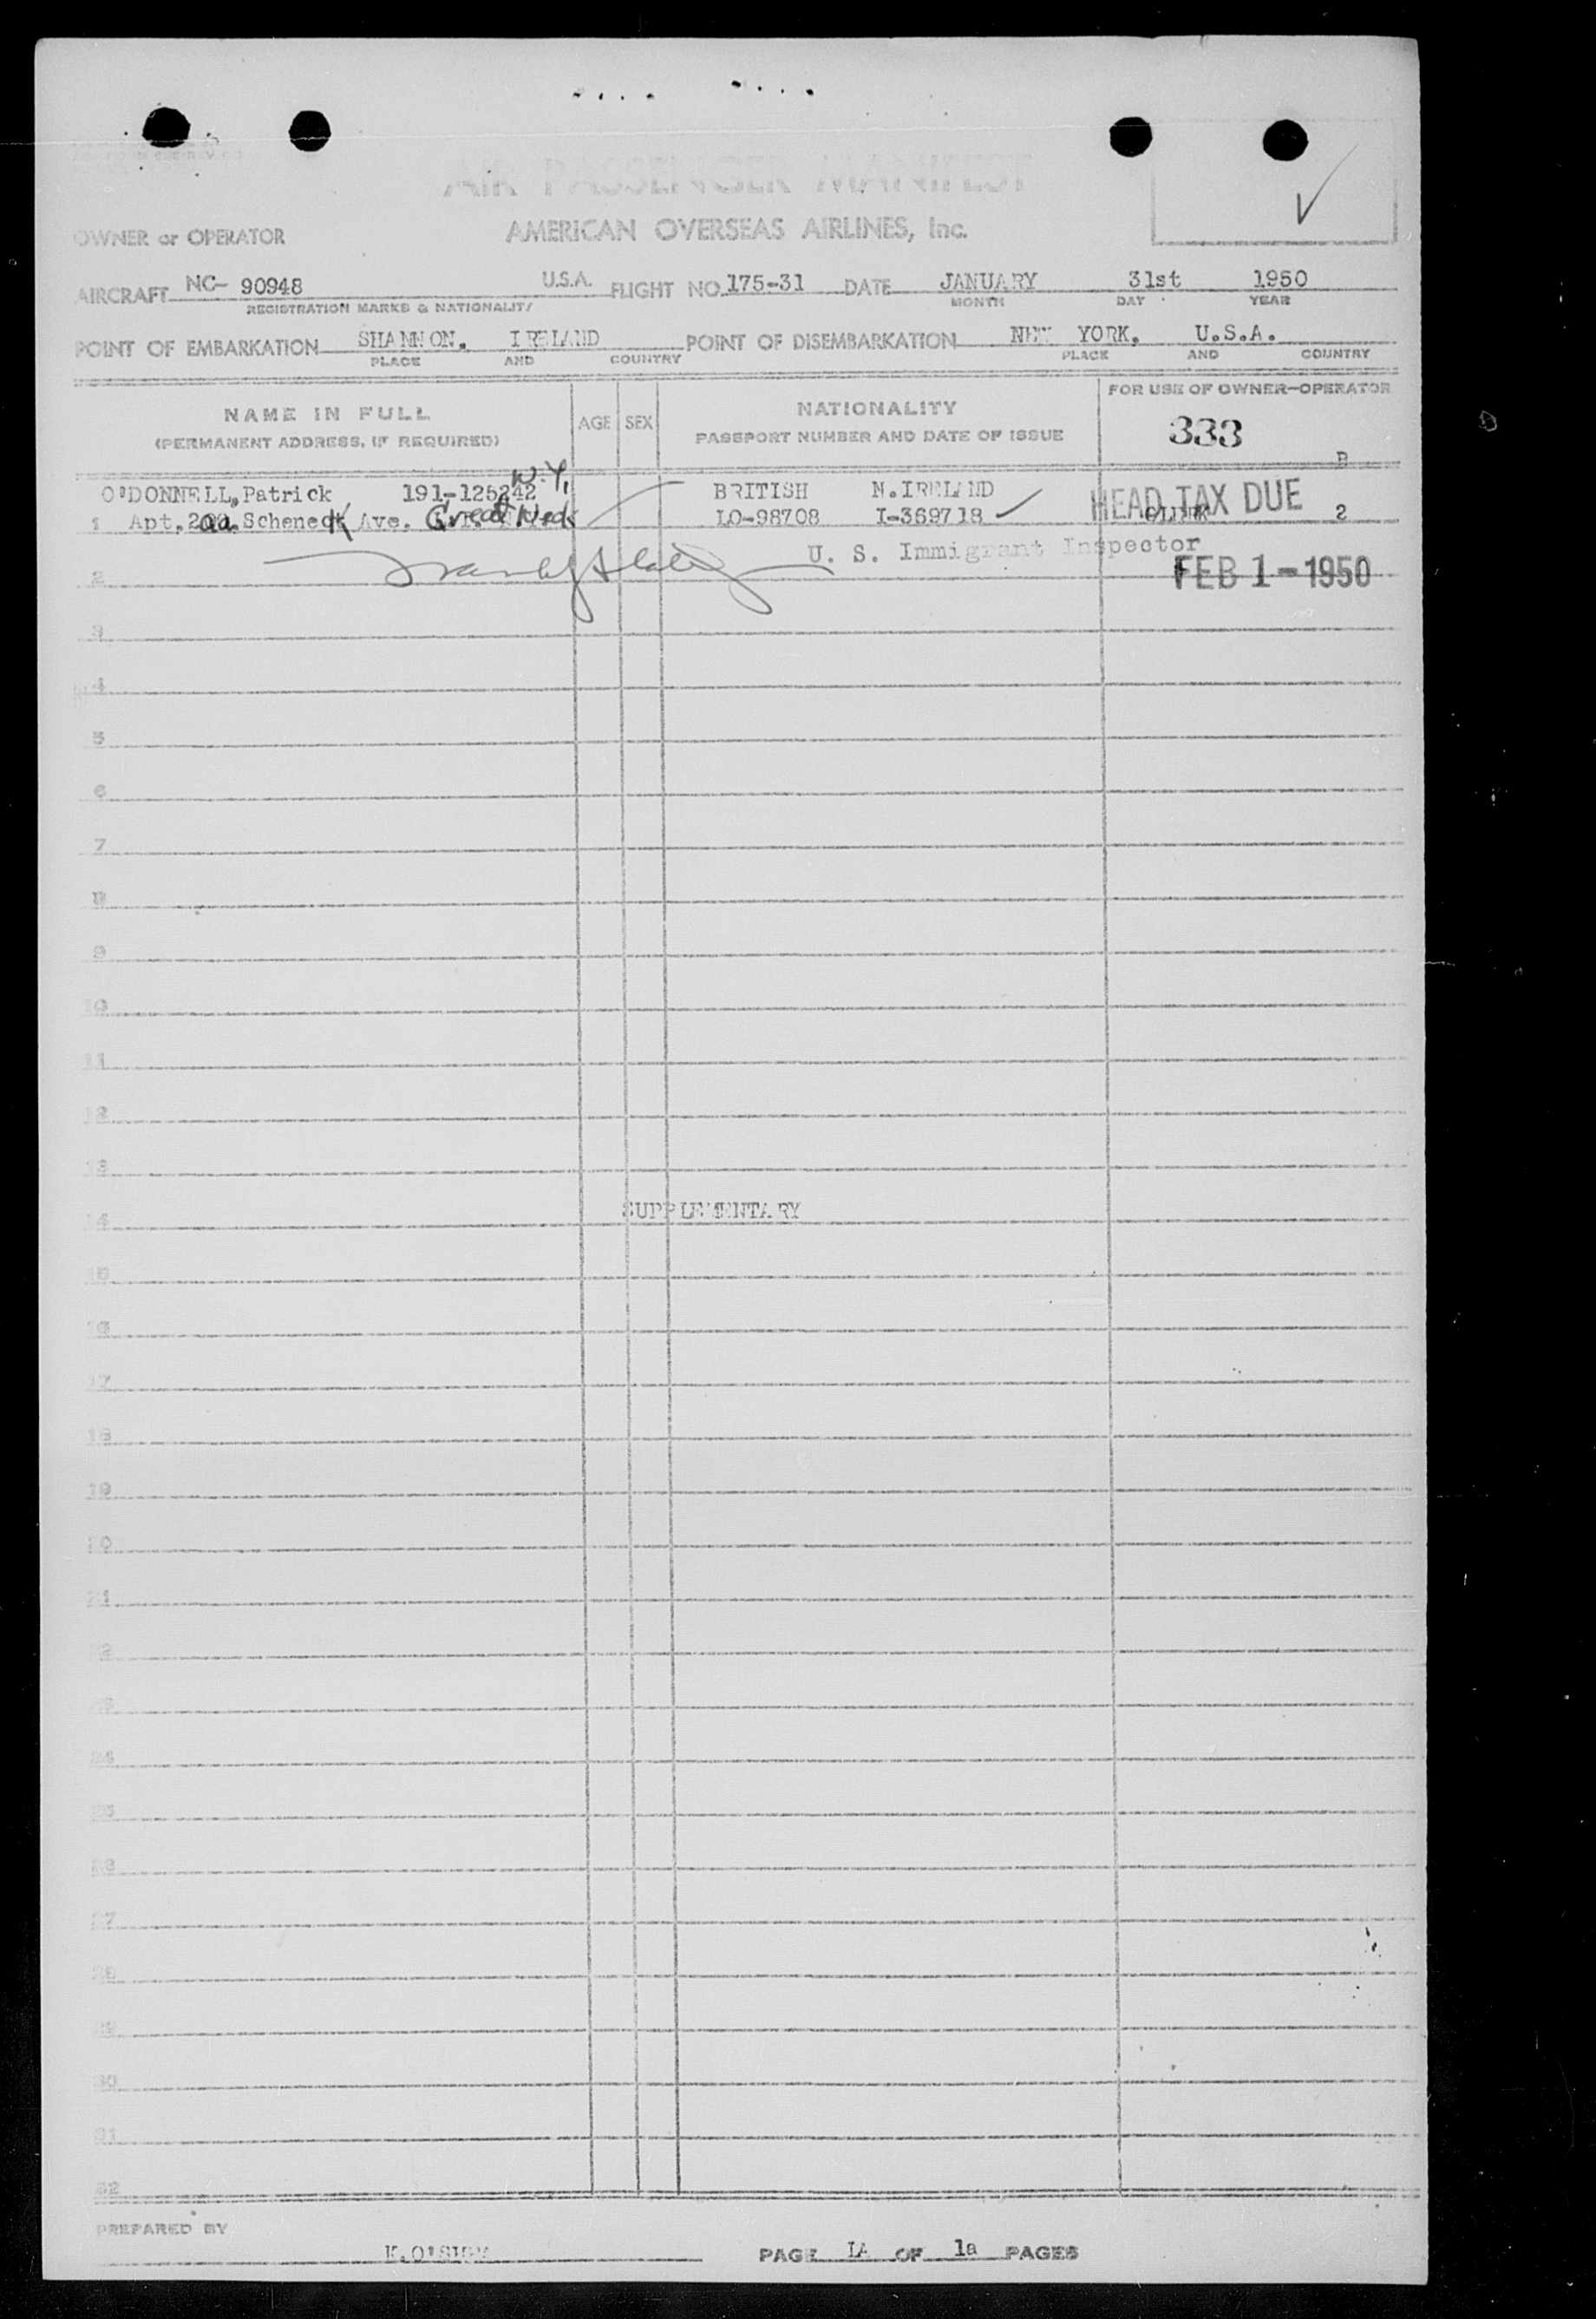 AIR PASSENGER MANIFEST
OWNER or OPERATOR AMERICAN OVERSEAS AIRLINES, Inc.
AIRCRAFT NC- 90948 U.S.A. FLIGHT NO. 175-31 DATE JANUARY 31st 1950
REGISTRATION MARKS & NATIONALITY MONTH DAY YEAR
POINT OF EMBARKATION SHANNON, IRELAND POINT OF DISEMBARKATION NEW YORK, U.S.A.
PLACE AND COUNTRY PLACE AND COUNTRY
NAME IN FULL AGE SEX NATIONALITY FOR USE OF OWNER-OPERATOR
(PERMANENT ADDRESS, IF REQUIRED) PASSPORT NUMBER AND DATE OF ISSUE 333
N.Y. B
O'DONNELL, Patrick 191-125242 BRITISH N.IRELAND HEAD TAX DUE
1 Apt. Scheneck Ave. Great Neck LO-98708 I-369718 2
U. S. Immigrant Inspector
2 FEB 1-1950
3
4
5
6
7
8
9
10
11
12
13
14 SUPPLEMENTARY
15
16
17
18
19
20
21
22
23
24
25
26
27
28
29
30
31
32
PREPARED BY
PAGE IA OF 1a PAGES